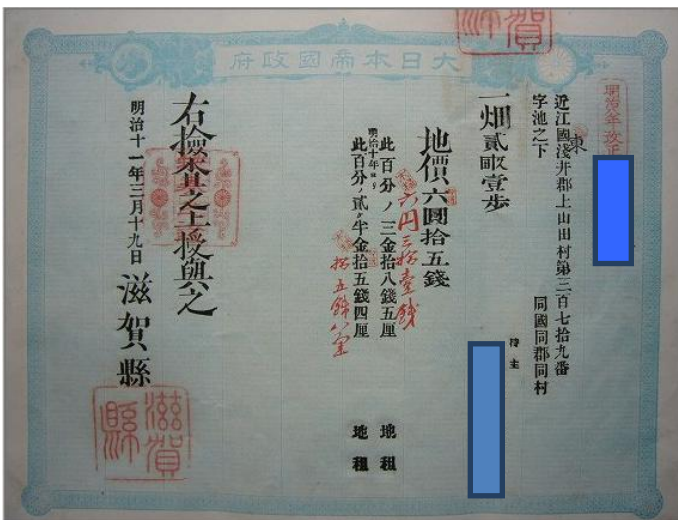 大日本帝國政府
近江國東淺井郡上山田村第三百七拾九番
字池之下
同國同郡同村
持主
一畑貳畝壹步
地價六圓拾五錢
六円三拾壹錢
此百分ノ三金拾八錢五厘 地租
明治十年ヨリ
此百分ノ貳ヶ半金拾五錢四厘 地租
拾五錢八厘
右檢査之上授與之
明治十一年三月十九日
滋賀縣
滋賀縣